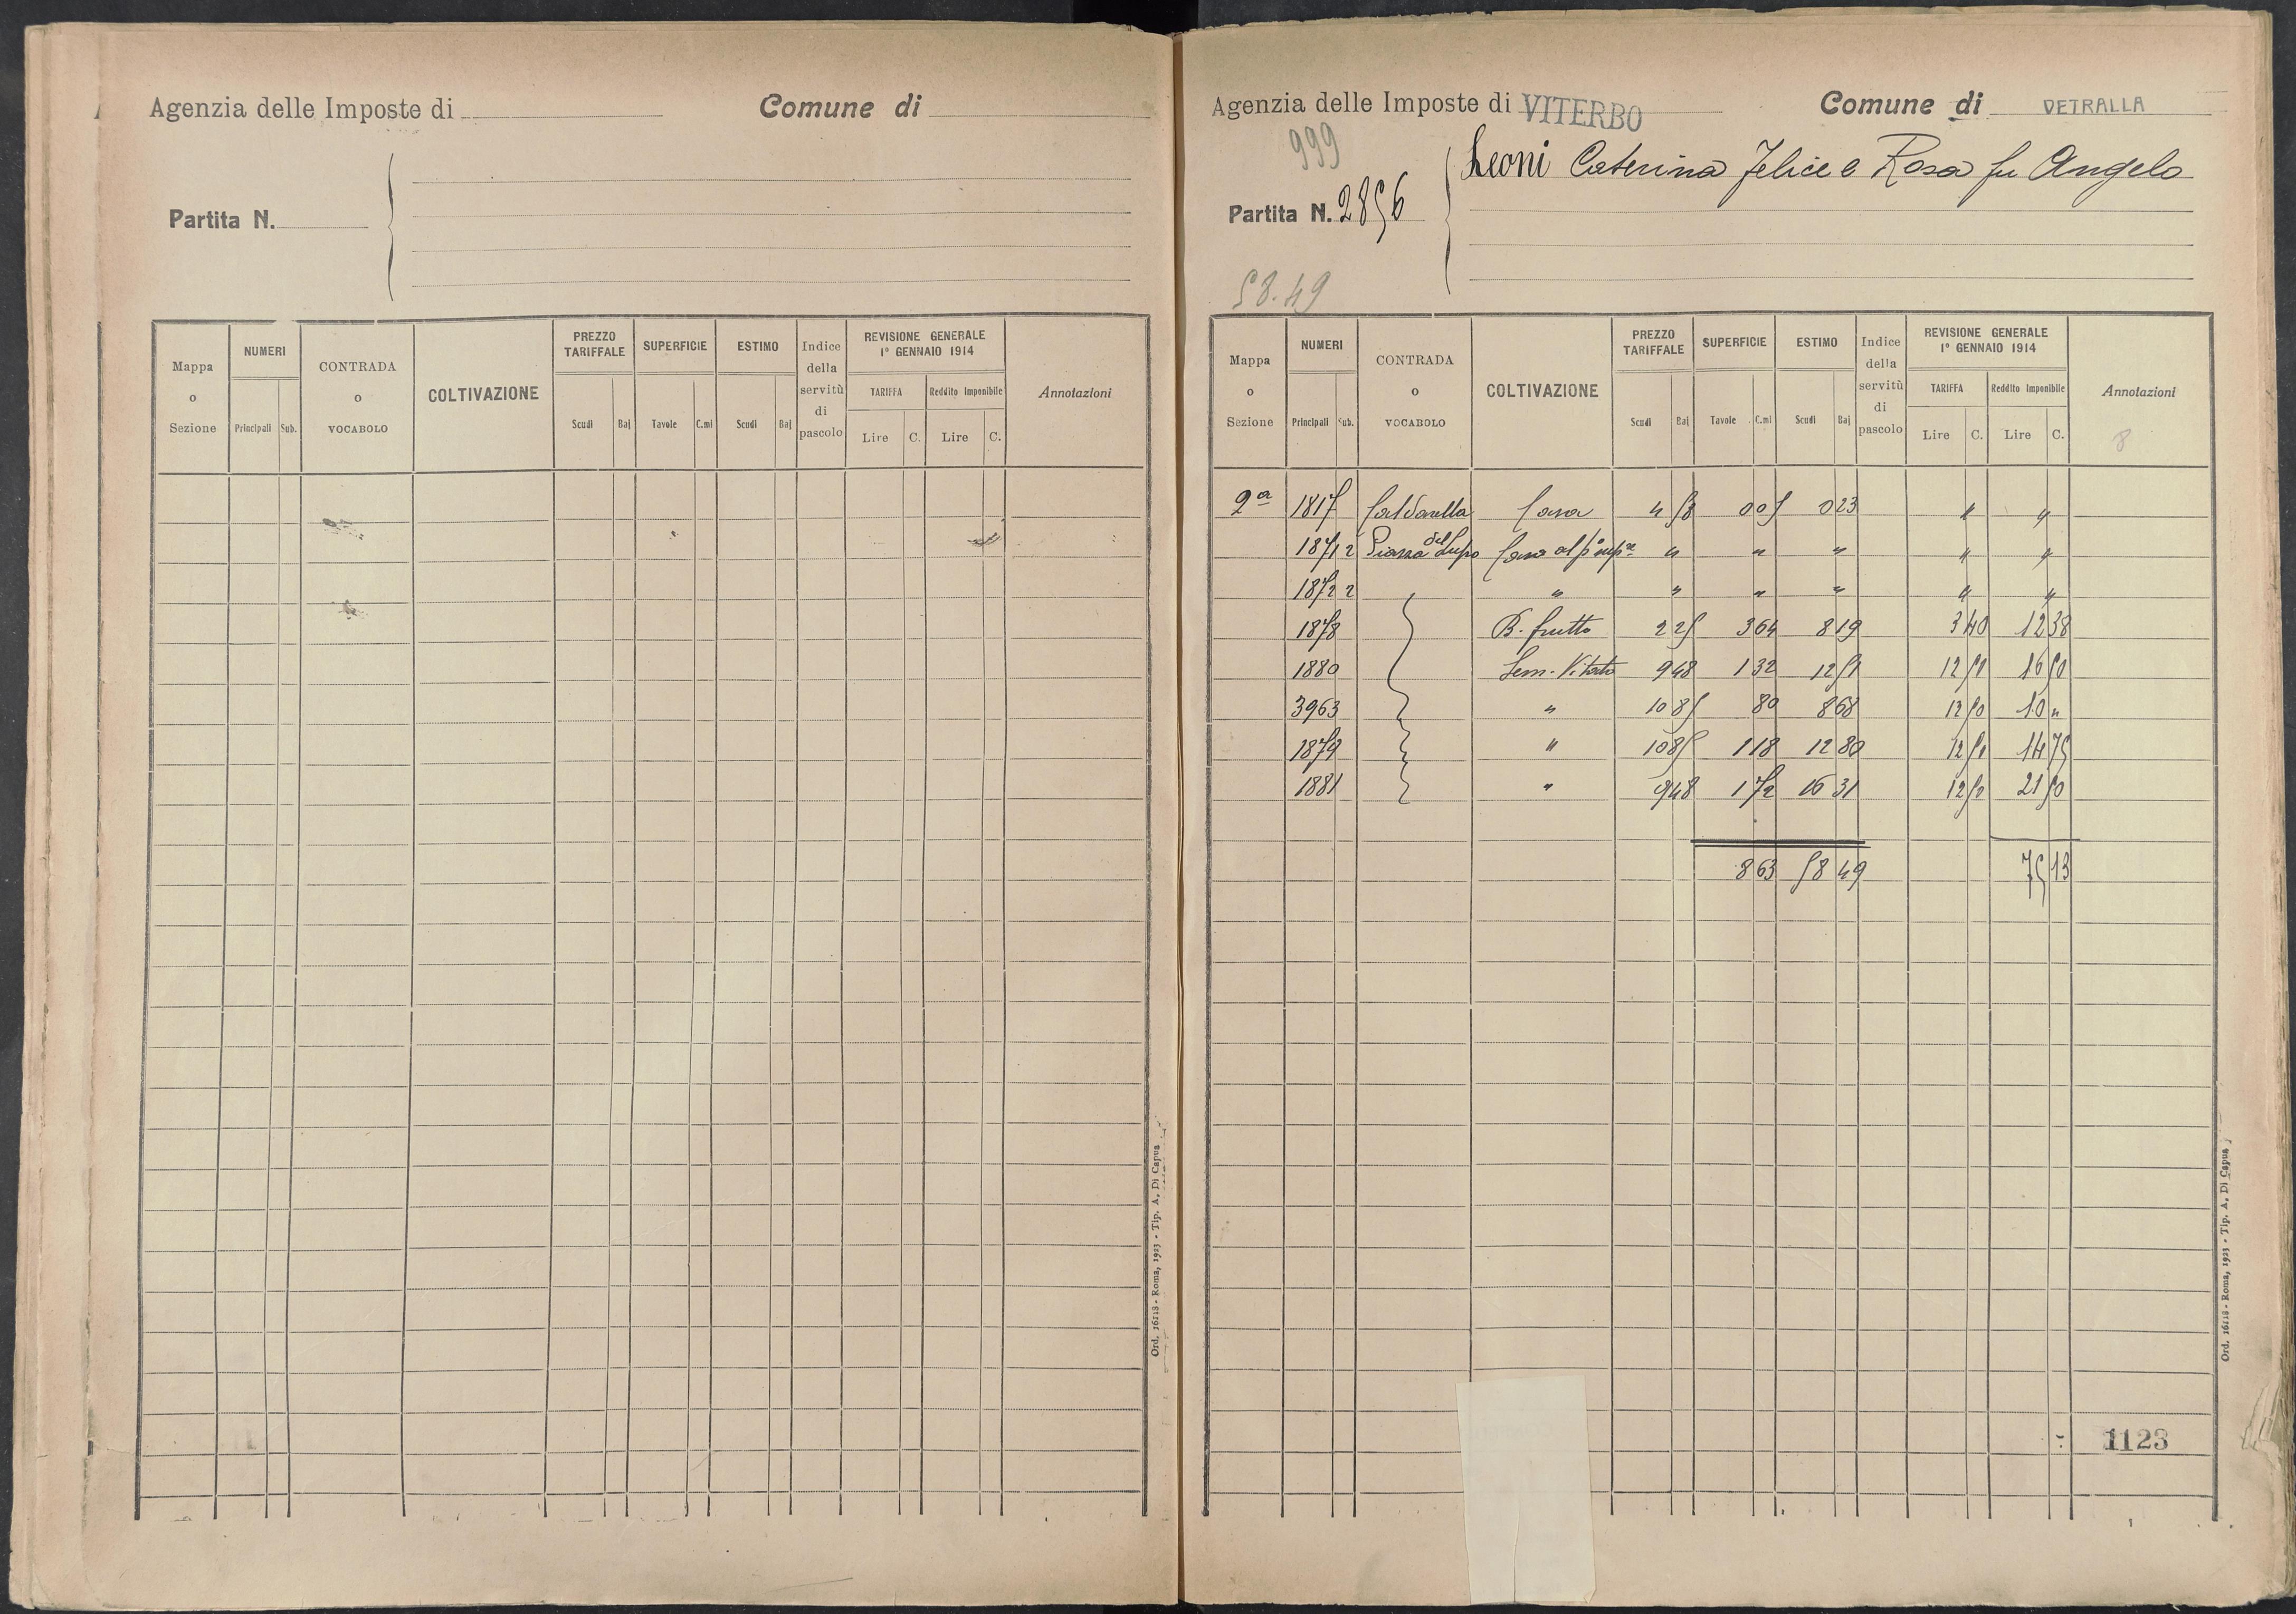 Agenzia delle Imposte di
Comune di
Partita N.
Mappa o Sezione
NUMERI
Principali Sub.
CONTRADA o VOCABOLO
COLTIVAZIONE
PREZZO TARIFFALE
Scudi Baj
SUPERFICIE
Tavole C.mi
ESTIMO
Scudi Baj
Indice della servitù di pascolo
REVISIONE GENERALE
1° GENNAIO 1914
TARIFFA
Lire C.
Reddito Imponibile
Lire C.
Annotazioni
Ord. 16118 - Roma, 1923 - Tip. A. Di Capua
Agenzia delle Imposte di VITERBO
Comune di VETRALLA
999
Leoni Caterina Felice e Rosa fu Angelo
Partita N. 2856
58.49
Mappa o Sezione
NUMERI
Principali Sub.
CONTRADA o VOCABOLO
COLTIVAZIONE
PREZZO TARIFFALE
Scudi Baj
SUPERFICIE
Tavole C.mi
ESTIMO
Scudi Baj
Indice della servitù di pascolo
REVISIONE GENERALE
1° GENNAIO 1914
TARIFFA
Lire C.
Reddito Imponibile
Lire C.
Annotazioni
8
2a 1817 Casa 4 58 0 05 0 23 " "
1871 2 Piazza del Lupo Casa al p° " " " " "
1872 2 " " " " " "
1878 B. frutto 2 25 3 64 8 19 3 40 12 38
1880 Sem. Vitato 9 48 1 32 12 51 12 51 16 50
3963 " 10 85 80 8 68 12 50 10 "
1879 " 10 85 1 18 12 80 12 51 14 75
1881 " 9 48 1 72 16 31 12 52 21 50
8 63 58 49 75 13
1123
Ord. 16118 - Roma, 1923 - Tip. A. Di Capua